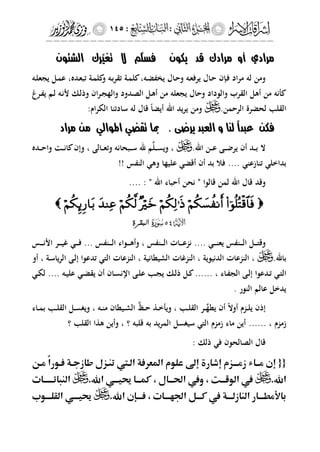 الباب الثاني : الجزء الثاني : ١٤٥
مرادي أو مرادك قد يكون فسلّم لا تغيّرك الشئون
ومن له مراد فإن حال يرفعه وحال يخفضه، كلمة تقربه وكلمة تبعده، عمل يجعله
كأنه من أهل القرب والوداد وحال يجعله من أهل الصدود والهجران وذلك لأنه لم يفرغ
القلب لحضرة الرحمن. ومن يريد الله أيضاً قال له سادتنا الكرام:
فكن عبداً لنا و العبد يرضى . بما تقضي الموالي من مراد
لا بد أن يرضى عن الله ، ويسلّم له سبحانه وتعالى ، وإن كانت واحده
بداخلي تنازعني .... فلا بد أن أقضي عليها وهي النفس !!
وقد قال الله لمن قالوا " نحن أحباء الله " : ....
﴿ فَاقْتُلُوٓا۟ أَنفُسَكُمْ ذَٰلِكُمْ خَيْرٌ لَّكُمْ عِندَ بَارِئِكُمْ ﴾
﴿٥٤﴾ سورة البقرة
وقتل النفس يعني .... نزعات النفس ، وأهواء النفس ... في غير الأنس
بالله ، النزعات الدنيوية ، النزغات الشيطانية ، النزعات التي تدعوا إلى الرياسة ، أو
التي تدعوا إلى الجفاء ، ...... كل ذلك يجب على الإنسان أن يقضي عليه .... لكي
يدخل عالم النور .
إذن يلزم أولاً أن يطهّر القلب ، ويأخذ حظّ الشيطان منه ، ويغسل القلب بماء
زمزم ، ...... أين ماء زمزم التي سيغسل المريد به قلبه ؟ ، وأين هذا القلب ؟
قال الصالحون في ذلك :
{{ إن ماء زمزم إشارة إلى علوم المعرفة التي تنزل طازجة فوراً من
الله في الوقت ، وفي الحال ، كما يحيي الله النباتات
بالأمطار النازلة في كل الجهات ، فإن الله يحيي القلوب